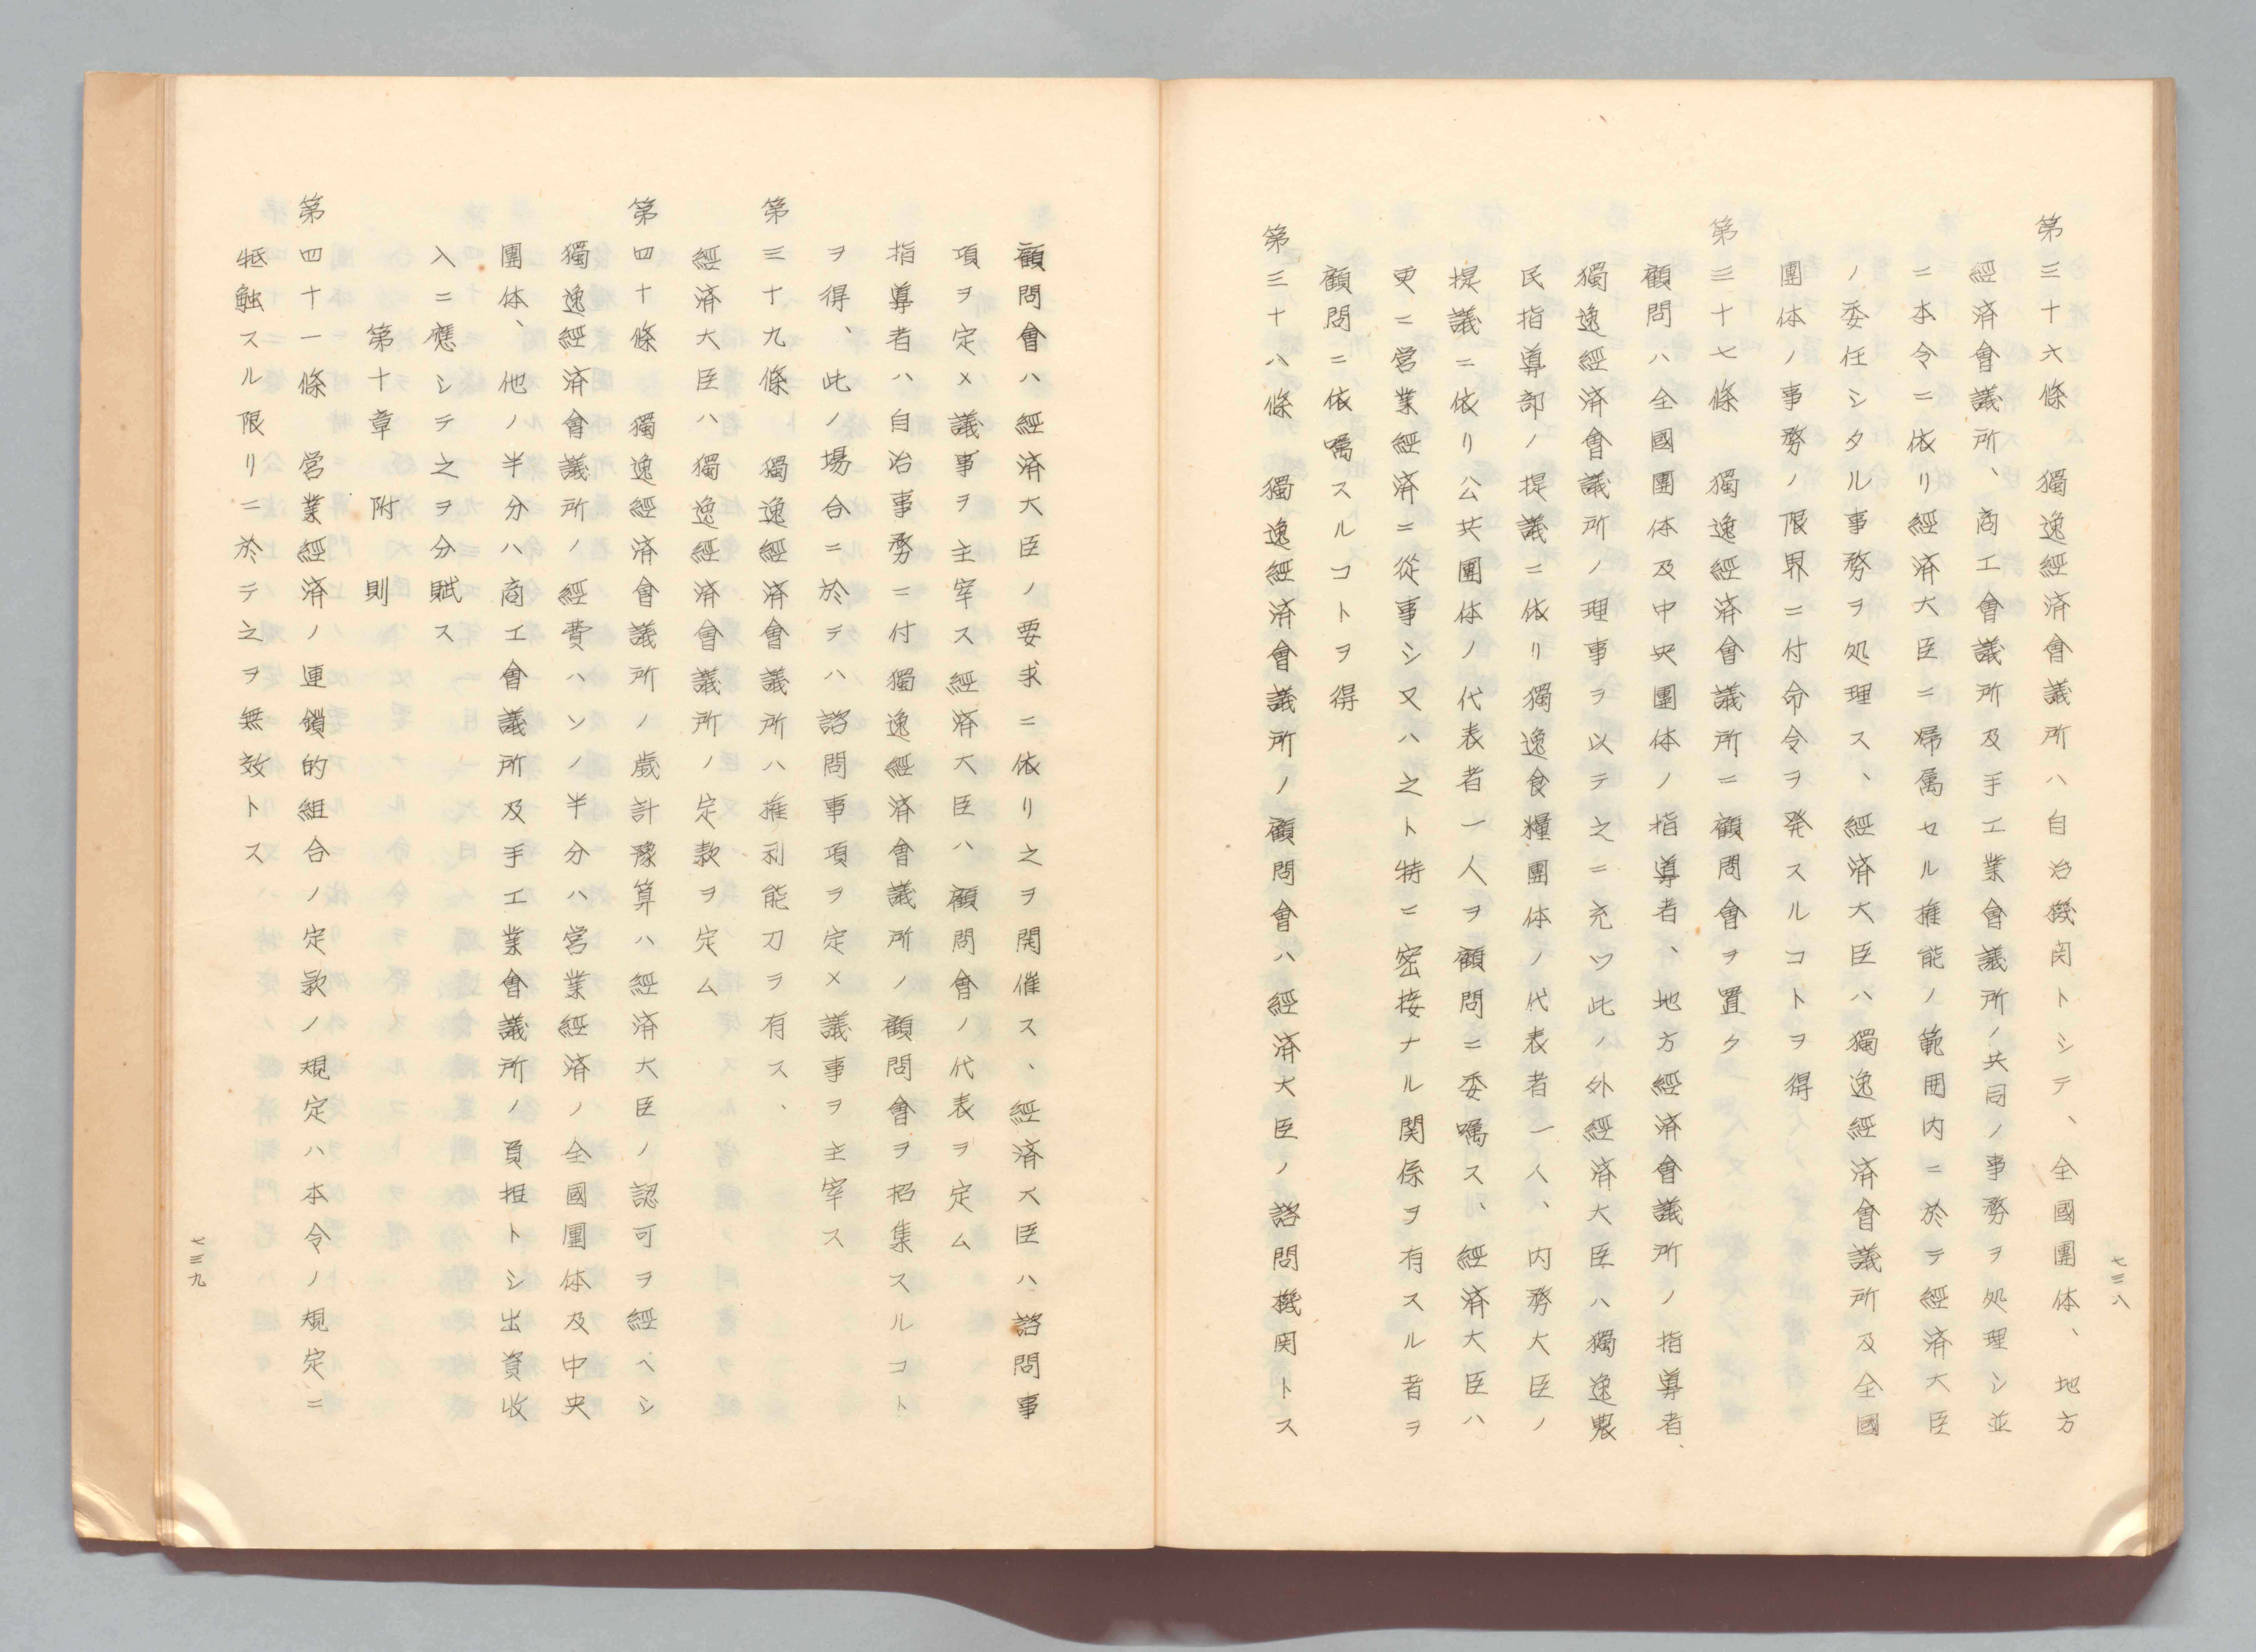 第三十六條　獨逸經済會議所ハ自治機関トシテ、全國團体、地方
經済會議所、商工會議所及手工業會議所ノ共同ノ事務ヲ処理シ並
ニ本令ニ依リ經済大臣ニ帰属セル権能ノ範囲内ニ於テ經済大臣
ノ委任シタル事務ヲ処理ス、經済大臣ハ獨逸經済會議所及全國
團体ノ事務ノ限界ニ付命令ヲ発スルコトヲ得
第三十七條　獨逸經済會議所ニ顧問會ヲ置ク
顧問ハ全國團体及中央團体ノ指導者、地方經済會議所ノ指導者、
獨逸經済會議所ノ理事ヲ以テ之ニ充ツ此ノ外經済大臣ハ獨逸農
民指導部ノ提議ニ依リ獨逸食糧團体ノ代表者一人、内務大臣ノ
提議ニ依リ公共團体ノ代表者一人ヲ顧問ニ委嘱ス、經済大臣ハ
更ニ営業經済ニ從事シ又ハ之ト特ニ密接ナル関係ヲ有スル者ヲ
顧問ニ依嘱スルコトヲ得
第三十八條　獨逸經済會議所ノ顧問會ハ經済大臣ノ諮問機関トス
七三八
顧問會ハ經済大臣ノ要求ニ依リ之ヲ開催ス、經済大臣ハ諮問事
項ヲ定メ議事ヲ主宰ス經済大臣ハ顧問會ノ代表ヲ定ム
指導者ハ自治事務ニ付獨逸經済會議所ノ顧問會ヲ招集スルコト
ヲ得、此ノ場合ニ於テハ諮問事項ヲ定メ議事ヲ主宰ス
第三十九條　獨逸經済會議所ハ権利能力ヲ有ス、
經済大臣ハ獨逸經済會議所ノ定款ヲ定ム
第四十條　獨逸經済會議所ノ歳計豫算ハ經済大臣ノ認可ヲ經ヘシ
獨逸經済會議所ノ經費ハソノ半分ハ営業經済ノ全國團体及中央
團体、他ノ半分ハ商工會議所及手工業會議所ノ負担トシ出資收
入ニ應シテ之ヲ分賦ス
第十章　附　則
第四十一條　営業經済ノ連鎖的組合ノ定款ノ規定ハ本令ノ規定ニ
牴触スル限リニ於テ之ヲ無效トス
七三九